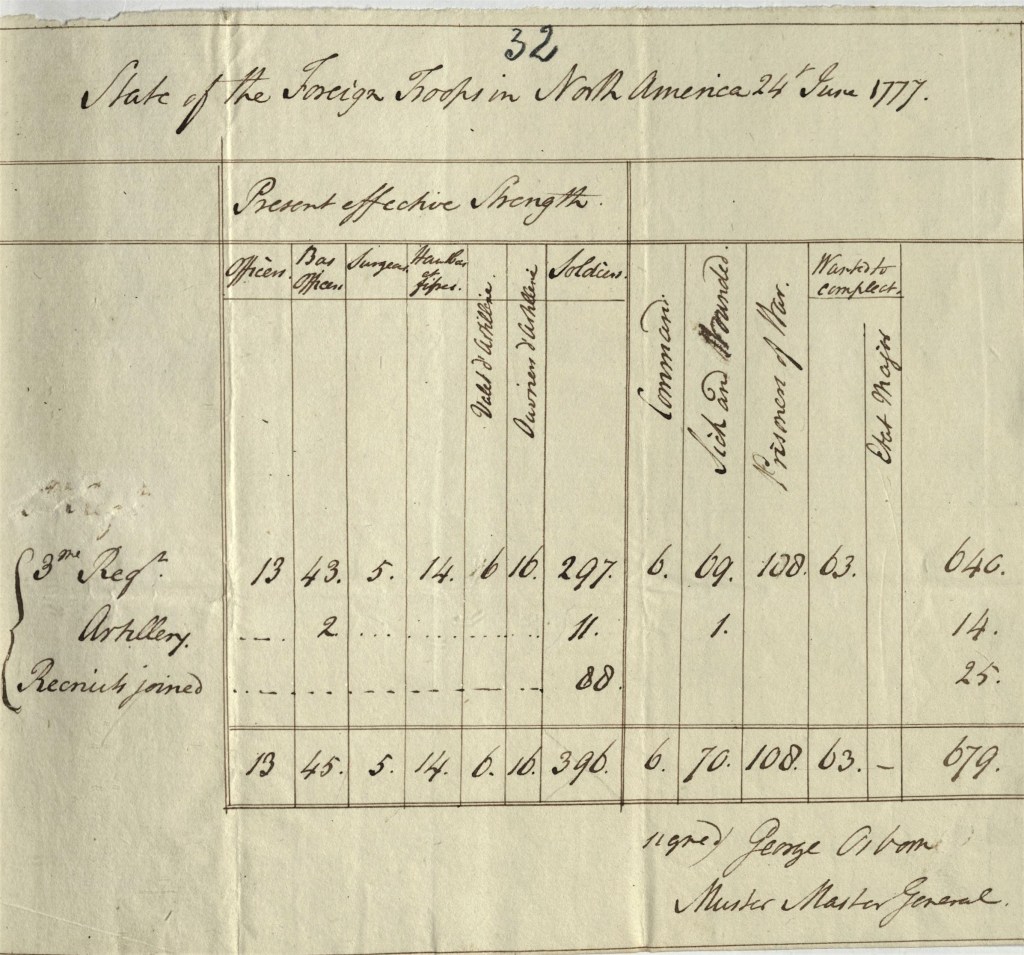 32
State of the Foreign Troops in North America 24t June 1777.
Present effective Strength.
Officers. Bas Officers Surgeons Hautbas et fifres. Valet d'Artillerie Ouvriers d'Artillerie Soldiers. Command. Sick and Wounded. Prisoners of War. Wanted to compleat. Etat Major
3me Regt. 13 43. 5. 14. 6 16. 297. 6. 69. 108. 63. 640.
Artillery. 2 11. 1. 14.
Recruits joined 88. 25.
13 45. 5. 14. 6. 16. 396. 6. 70. 108. 63. – 679.
signed) George Osborn
Muster Master General.